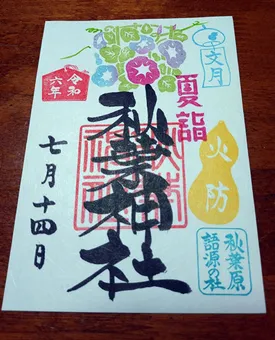 文月
夏詣
令和
六年
秋葉神社
火防
七月十四日
秋葉原
語源の社